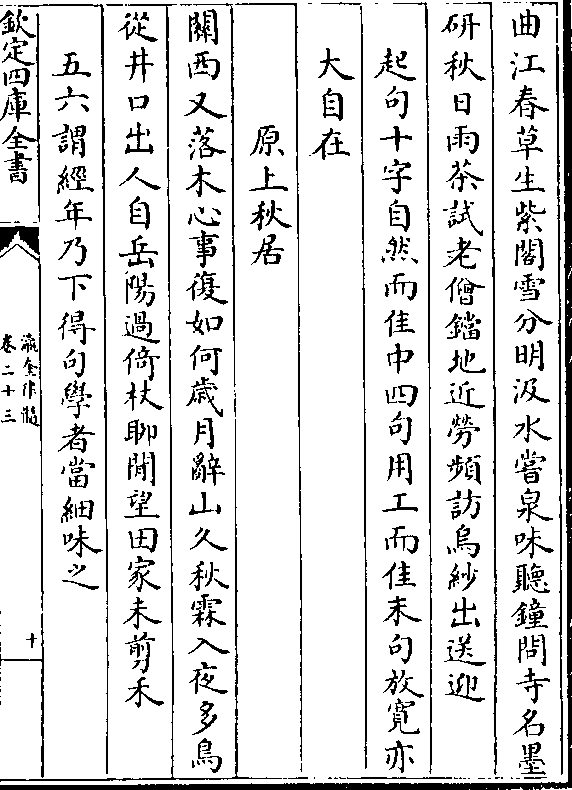 曲江春草生紫閣雪分明汲水嘗泉味聽鐘問寺名墨
研秋日雨茶試老僧鐺地近勞頻訪烏紗出送迎
起句十字自然而佳中四句用工而佳末句放寛亦
大自在
原上秋居
關西又落木心事復如何歳月辭山久秋霖入夜多鳥
從井口出人自岳陽過倚杖聊閒望田家未剪禾
五六謂經年乃下得句學者當細味之
欽定四庫全書
瀛奎律髓
卷二十三
十